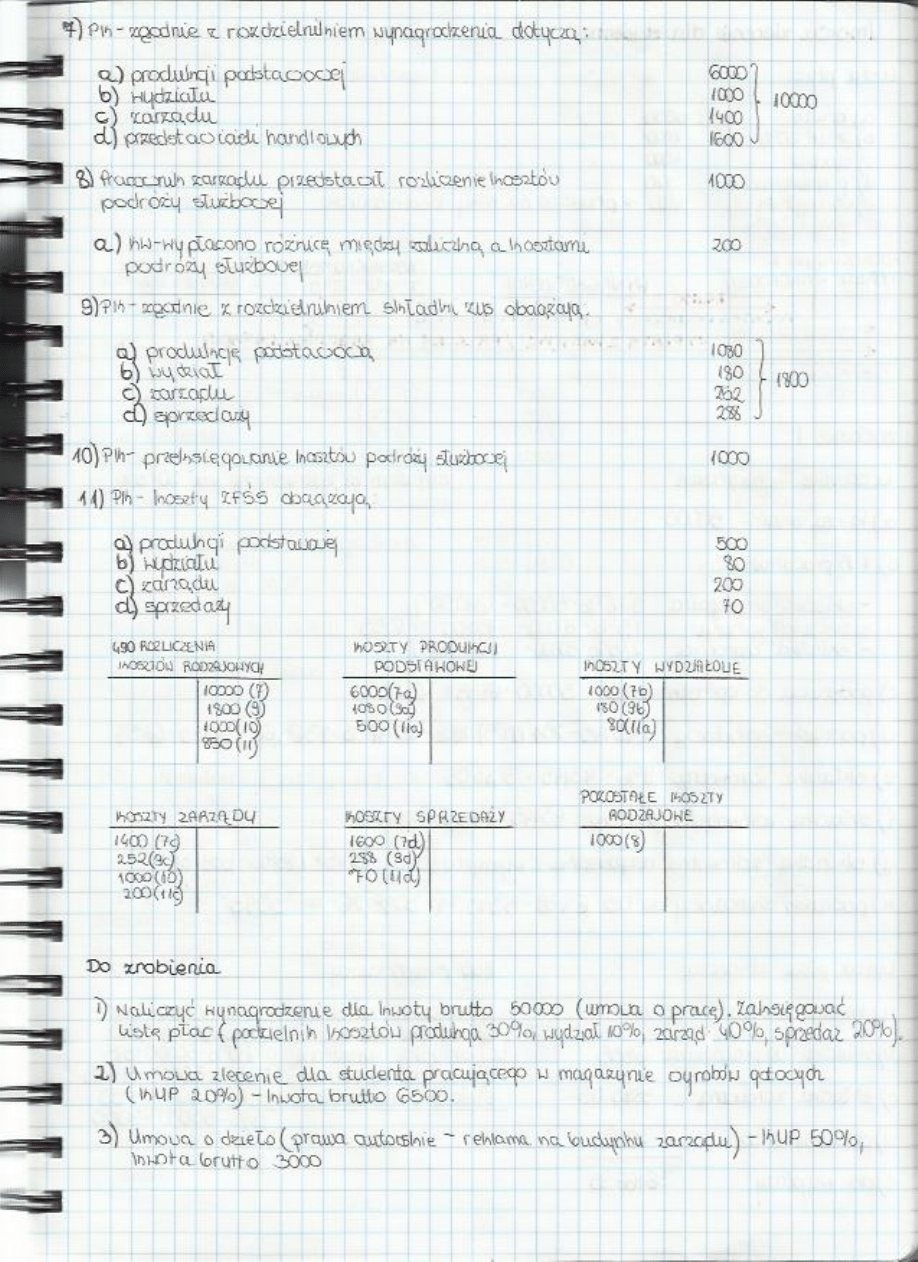 7) PK - zgodnie z rozdzielnikiem wynagrodzenia dotyczą:
a) produkcji podstawowej 6000
b) wydziału 1000
c) zarządu 1400
d) przedstawicieli handlowych 1600
10000
8) Pracownik zarządu przedstawił rozliczenie kosztów 1000
podróży służbowej
a) KW - wypłacono różnicę między zaliczką a kosztami 200
podróży służbowej
9) PK - zgodnie z rozdzielnikiem składki ZUS obciążają:
a) produkcję podstawową 1080
b) wydział 180
c) zarządu 252
d) sprzedaży 288
1800
10) PK - przeksięgowanie kosztów podróży służbowej 1000
11) PK - koszty ZFŚS obciążają:
a) produkcji podstawowej 500
b) wydziału 80
c) zarządu 200
d) sprzedaży 70
490 ROZLICZENIA
KOSZTÓW RODZAJOWYCH
10000 (7)
1800 (9)
1000 (10)
850 (11)
KOSZTY PRODUKCJI
PODSTAWOWEJ
6000 (7a)
1080 (9a)
500 (11a)
KOSZTY WYDZIAŁOWE
1000 (7b)
180 (9b)
80 (11a)
KOSZTY ZARZĄDU
1400 (7c)
252 (9c)
1000 (10)
200 (11c)
KOSZTY SPRZEDAŻY
1600 (7d)
288 (9d)
70 (11d)
POZOSTAŁE KOSZTY
RODZAJOWE
1000 (8)
Do zrobienia
1) Naliczyć wynagrodzenie dla kwoty brutto 50000 (umowa o pracę). Zaksięgować
listę płac (podzielnik kosztów produkcja 30%, wydział 10%, zarząd 40%, sprzedaż 20%).
2) Umowa zlecenie dla studenta pracującego w magazynie wyrobów gotowych
(KUP 20%) - kwota brutto 6500.
3) Umowa o dzieło (prawa autorskie - reklama na budynku zarządu) - KUP 50%,
kwota brutto 3000